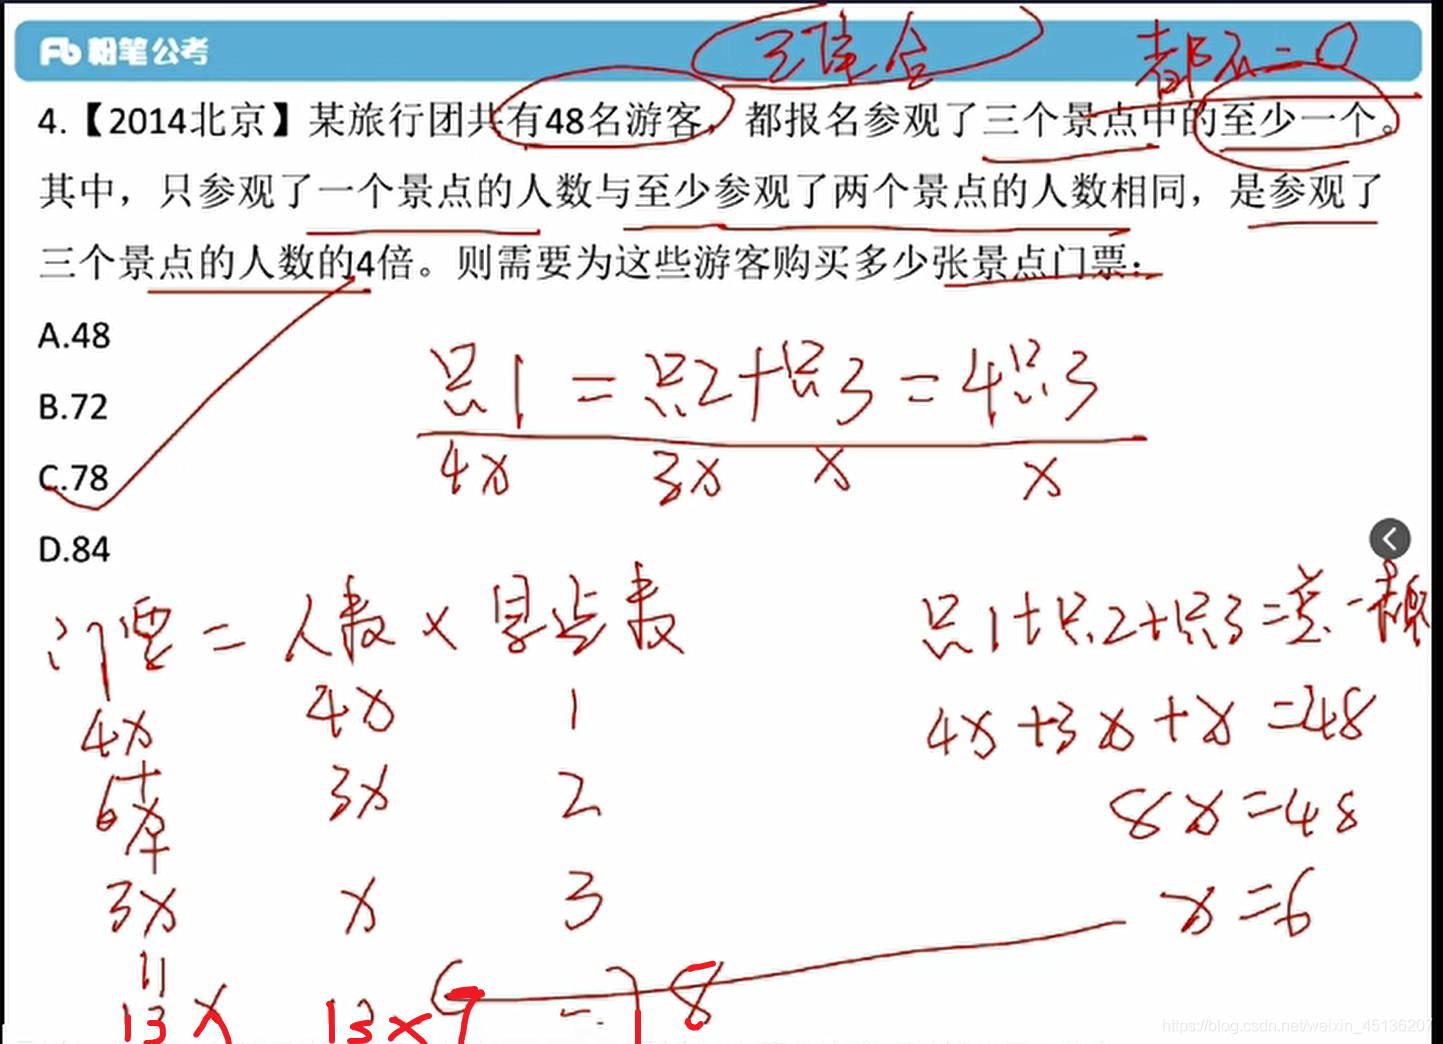 粉笔公考
三集合
都不=0
4.【2014北京】某旅行团共有48名游客，都报名参观了三个景点中的至少一个。
其中，只参观了一个景点的人数与至少参观了两个景点的人数相同，是参观了
三个景点的人数的4倍。则需要为这些游客购买多少张景点门票：
A.48
B.72
C.78
D.84
只1=只2+只3=4只3
4x 3x x x
门票=人数×景点数
只1+只2+只3=总-都不
4x 4x 1
4x+3x+x=48
+
6x 3x 2
8x=48
+
3x x 3
x=6
13x
https://blog.csdn.net/weixin_45136207